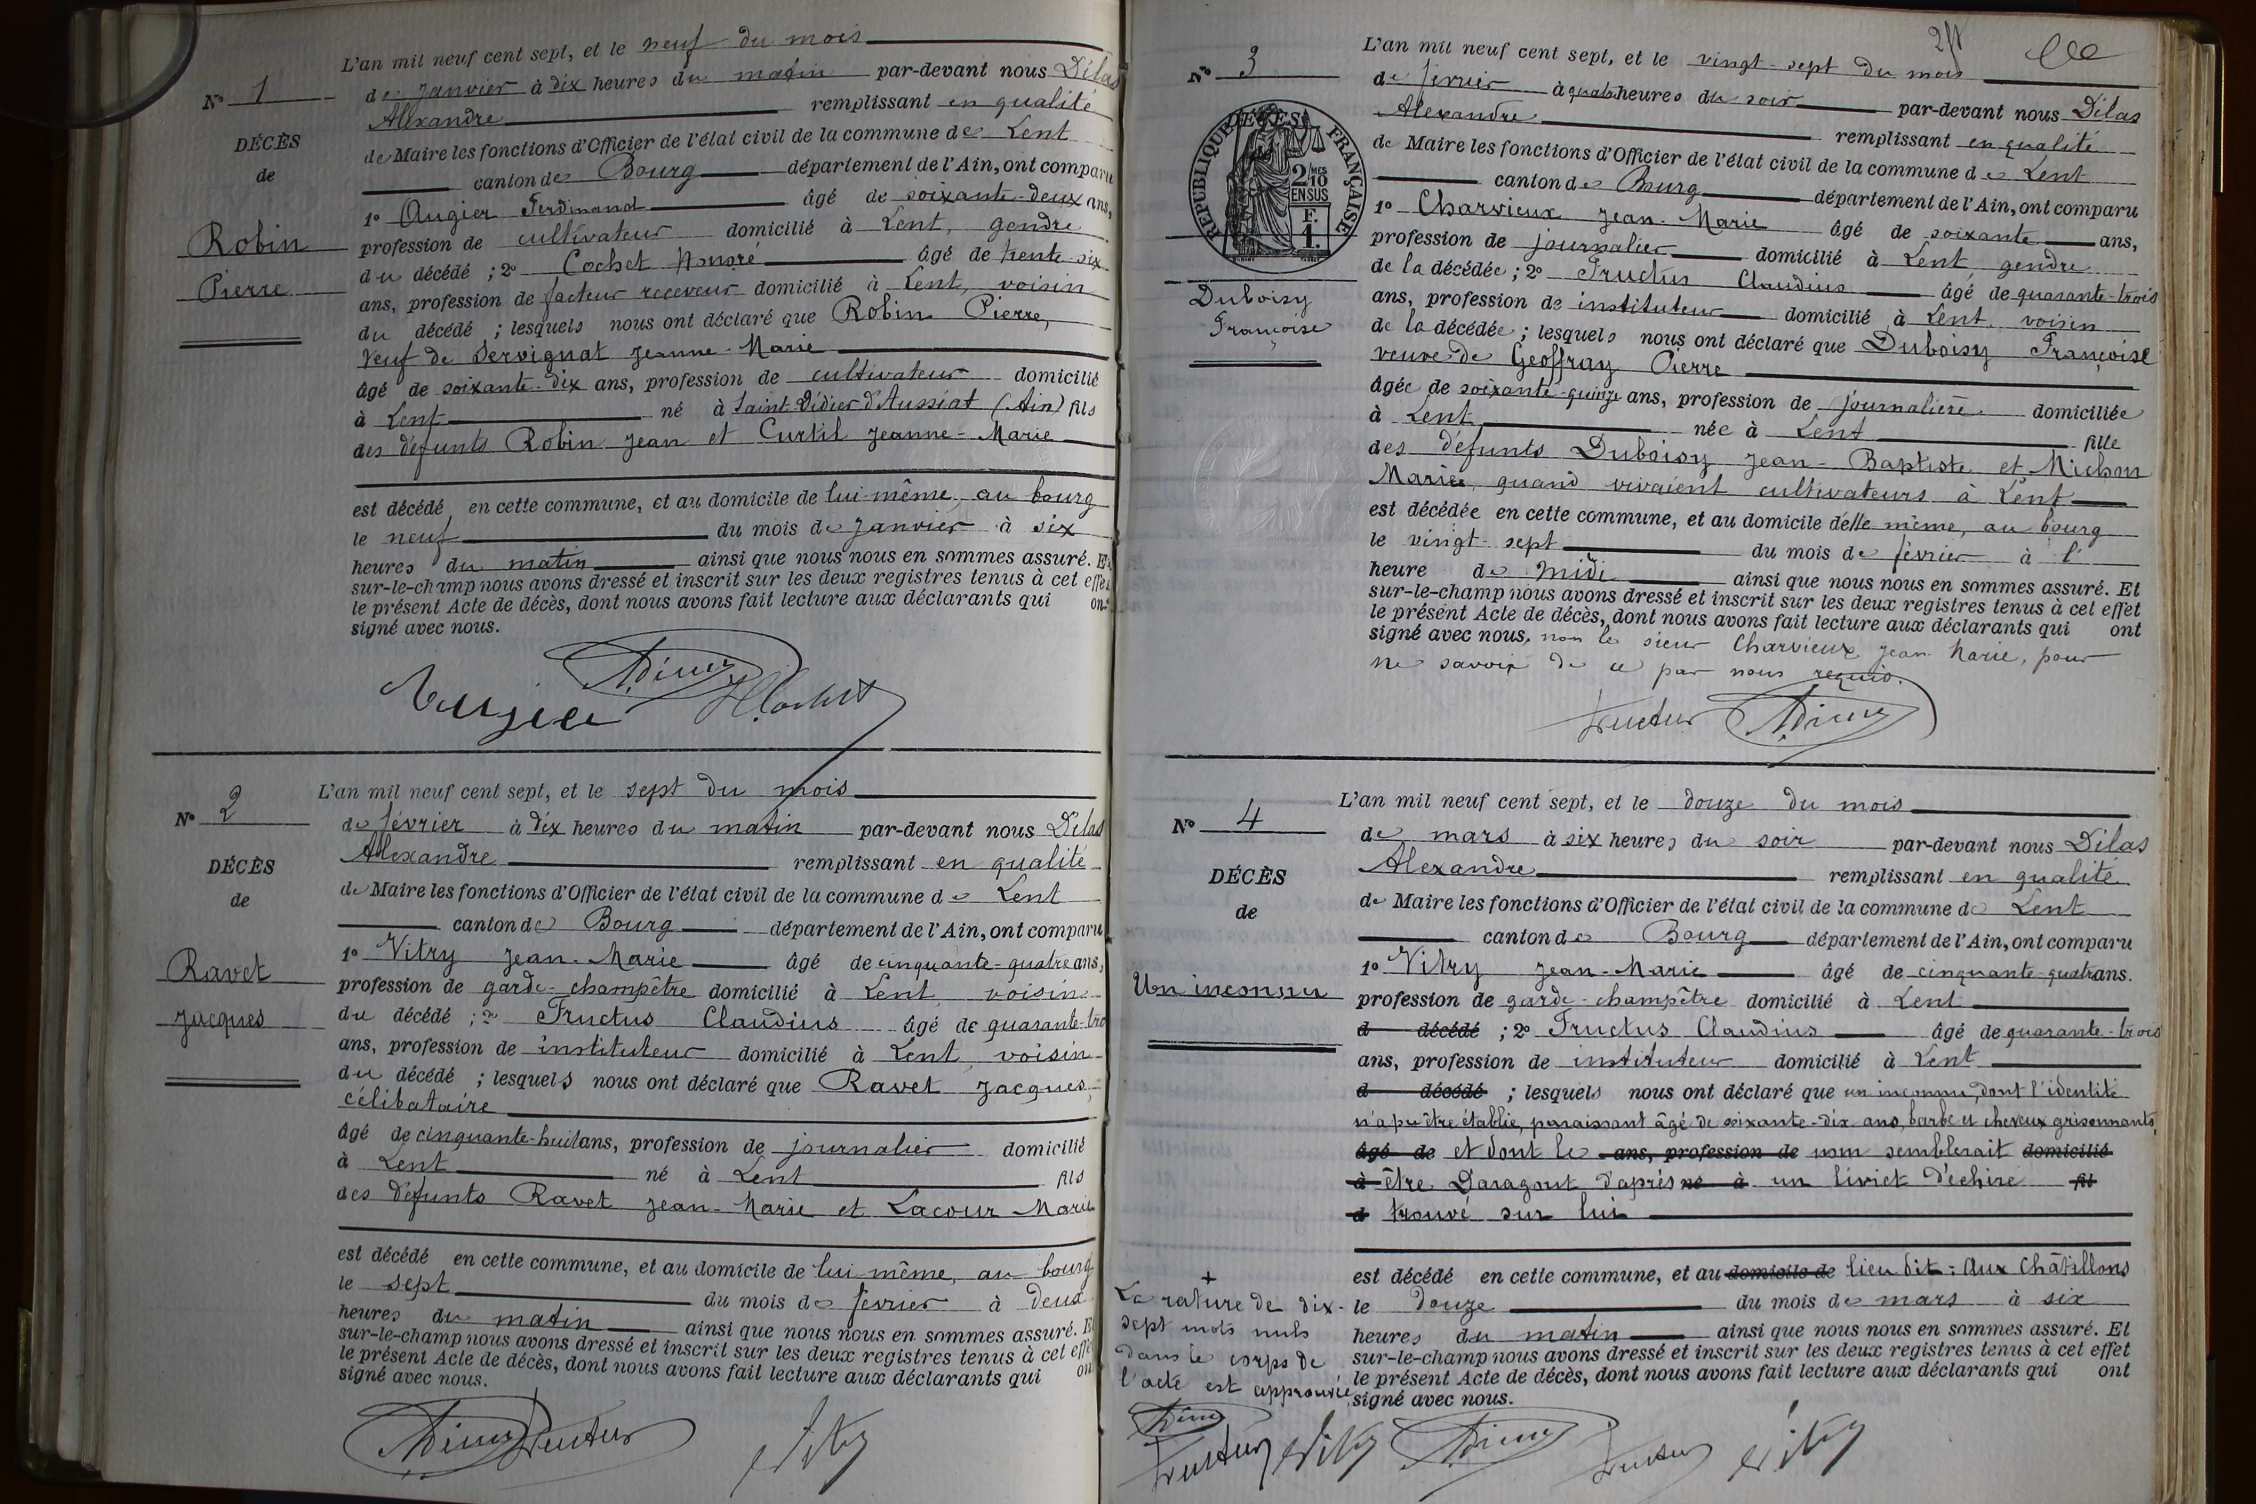 L'an mil neuf cent sept, et le neuf du mois
N° 1
de janvier à dix heures du matin par-devant nous Dilas
Alexandre remplissant en qualité
DÉCÈS
de Maire les fonctions d'Officier de l'état civil de la commune de Lent
de
canton de Bourg département de l'Ain, ont comparu
1° Augier Ferdinand âgé de soixante-deux ans,
Robin
profession de cultivateur domicilié à Lent, gendre
Pierre
du décédé ; 2° Cochet Honoré âgé de trente-six
ans, profession de facteur receveur domicilié à Lent, voisin
du décédé ; lesquels nous ont déclaré que Robin Pierre,
veuf de Servignat Jeanne-Marie
âgé de soixante-dix ans, profession de cultivateur domicilié
à Lent né à Saint-Didier d'Aussiat (Ain) fils
des défunts Robin Jean et Curtil Jeanne-Marie
est décédé en cette commune, et au domicile de lui-même, au bourg
le neuf du mois de janvier à six
heures du matin ainsi que nous nous en sommes assuré. Et
sur-le-champ nous avons dressé et inscrit sur les deux registres tenus à cet effet
le présent Acte de décès, dont nous avons fait lecture aux déclarants qui ont
signé avec nous.
Augier ADilas HCochet
L'an mil neuf cent sept, et le sept du mois
N° 2
de février à dix heures du matin par-devant nous Dilas
Alexandre remplissant en qualité
DÉCÈS
de Maire les fonctions d'Officier de l'état civil de la commune de Lent
de
canton de Bourg département de l'Ain, ont comparu
1° Vitry Jean-Marie âgé de cinquante-quatre ans,
Ravet
profession de garde-champêtre domicilié à Lent, voisin
Jacques
du décédé ; 2° Fructus Claudius âgé de quarante-tro
ans, profession de instituteur domicilié à Lent, voisin
du décédé ; lesquels nous ont déclaré que Ravet Jacques,
célibataire
âgé de cinquante-huit ans, profession de journalier domicilié
à Lent né à Lent fils
des défunts Ravet Jean-Marie et Lacour Marie
est décédé en cette commune, et au domicile de lui-même, au bourg
le sept du mois de février à deux
heures du matin ainsi que nous nous en sommes assuré. Et
sur-le-champ nous avons dressé et inscrit sur les deux registres tenus à cet effe
le présent Acte de décès, dont nous avons fait lecture aux déclarants qui on
signé avec nous.
ADilas Fructus Vitry
L'an mil neuf cent sept, et le vingt-sept du mois
N° 3
de février à quatre heures du soir par-devant nous Dilas
Alexandre remplissant en qualité
RÉPUBLIQUE FRANÇAISE
DÉCÈS
2 MES 10
EN SUS
F.
1.
de Maire les fonctions d'Officier de l'état civil de la commune de Lent
canton de Bourg département de l'Ain, ont comparu
1° Charvieux Jean-Marie âgé de soixante ans,
profession de journalier domicilié à Lent, gendre
de la décédée ; 2° Fructus Claudius âgé de quarante-trois
Duboisy
Françoise
ans, profession de instituteur domicilié à Lent, voisin
de la décédée ; lesquels nous ont déclaré que Duboisy Françoise
veuve de Geoffray Pierre
âgée de soixante-quinze ans, profession de journalière domiciliée
à Lent née à Lent fille
des défunts Duboisy Jean-Baptiste et Michon
Marie, quand vivaient cultivateurs à Lent
est décédée en cette commune, et au domicile d'elle même, au bourg
le vingt-sept du mois de février à l'
heure de midi ainsi que nous nous en sommes assuré. Et
sur-le-champ nous avons dressé et inscrit sur les deux registres tenus à cet effet
le présent Acte de décès, dont nous avons fait lecture aux déclarants qui ont
signé avec nous, non le sieur Charvieux Jean Marie, pour
ne savoir de ce par nous requis.
Fructus ADilas
L'an mil neuf cent sept, et le douze du mois
N° 4
de mars à six heures du soir par-devant nous Dilas
Alexandre remplissant en qualité
DÉCÈS
de Maire les fonctions d'Officier de l'état civil de la commune de Lent
de
canton de Bourg département de l'Ain, ont comparu
1° Vitry Jean-Marie âgé de cinquante-quatre ans.
Un inconnu
profession de garde-champêtre domicilié à Lent
d décédé ; 2° Fructus Claudius âgé de quarante-trois
ans, profession de instituteur domicilié à Lent
d décédé ; lesquels nous ont déclaré que un inconnu, dont l'identité
n'a pu être établie, paraissant âgé de soixante-dix ans, barbe et cheveux grisonnants,
âgé de et dont le ans, profession de nom semblerait domicilié
à être Daragout d'après né à un livret déchiré fil
d trouvé sur lui
est décédé en cette commune, et au domicile de lieu dit : Aux Châtillons
le douze du mois de mars à six
heures du matin ainsi que nous nous en sommes assuré. Et
sur-le-champ nous avons dressé et inscrit sur les deux registres tenus à cet effet
le présent Acte de décès, dont nous avons fait lecture aux déclarants qui ont
signé avec nous.
+
La rature de dix-
sept mots nuls
dans le corps de
l'acte est approuvée
Dilas
Fructus Vitry ADilas Fructus Vitry